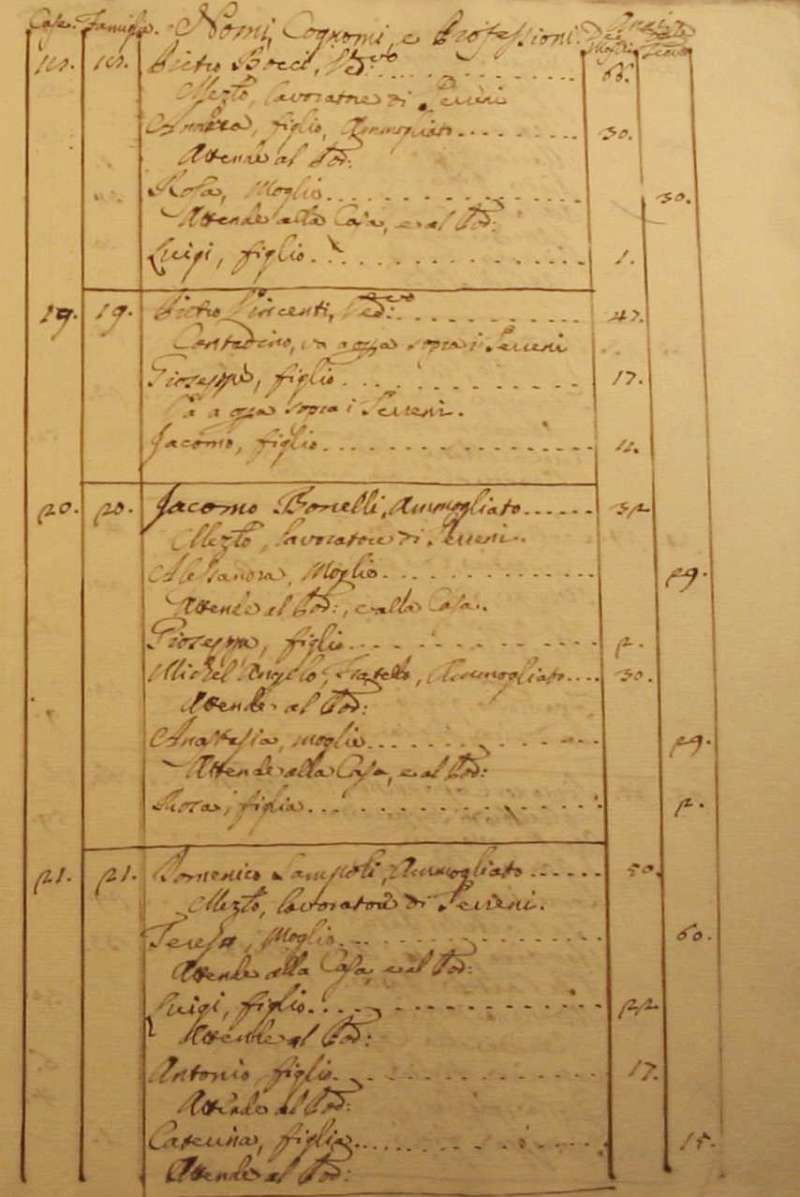 Case. Famiglie. Nomi, Cognomi, e Professioni. Anni
Dei Maschj Delle Femine
18. 18. Pietro Bocci, Ved:vo 66.
Mezz:o, lavoratore di Terreni
Andrea, figlio, Ammogliato 30.
Attende al Pod:
Rosa, Moglie 30.
Attende alla Casa, e al Pod:
Luigi, figlio 1.
19. 19. Pietro Vincenti, Ved:vo 47.
Contadino, va a opra sopra i Terreni
Gioseppe, figlio 17.
Va a opra sopra i Terreni.
Jacomo, figlio 11.
20. 20. Jacomo Bonelli, Ammogliato 32
Mezz:o, lavoratore di Terreni.
Alessandra, Moglie 29.
Attende al Pod:, e alla Casa.
Gioseppe, figlio 2.
Michel'Angelo, Fratello, Ammogliato 30.
Attende al Pod:
Anastasia, moglie 29.
Attende alla Casa, e al Pod:
Rosa, figlia 2.
21. 21. Domenico Lampoli, Ammogliato 50.
Mezz:o, lavoratore di Terreni.
Teresa, Moglie 60.
Attende alla Casa, e al Pod:
Luigi, figlio 22
Attende al Pod:
Antonio, figlio 17.
Attende al Pod:
Caterina, figlia 15.
Attende al Pod: